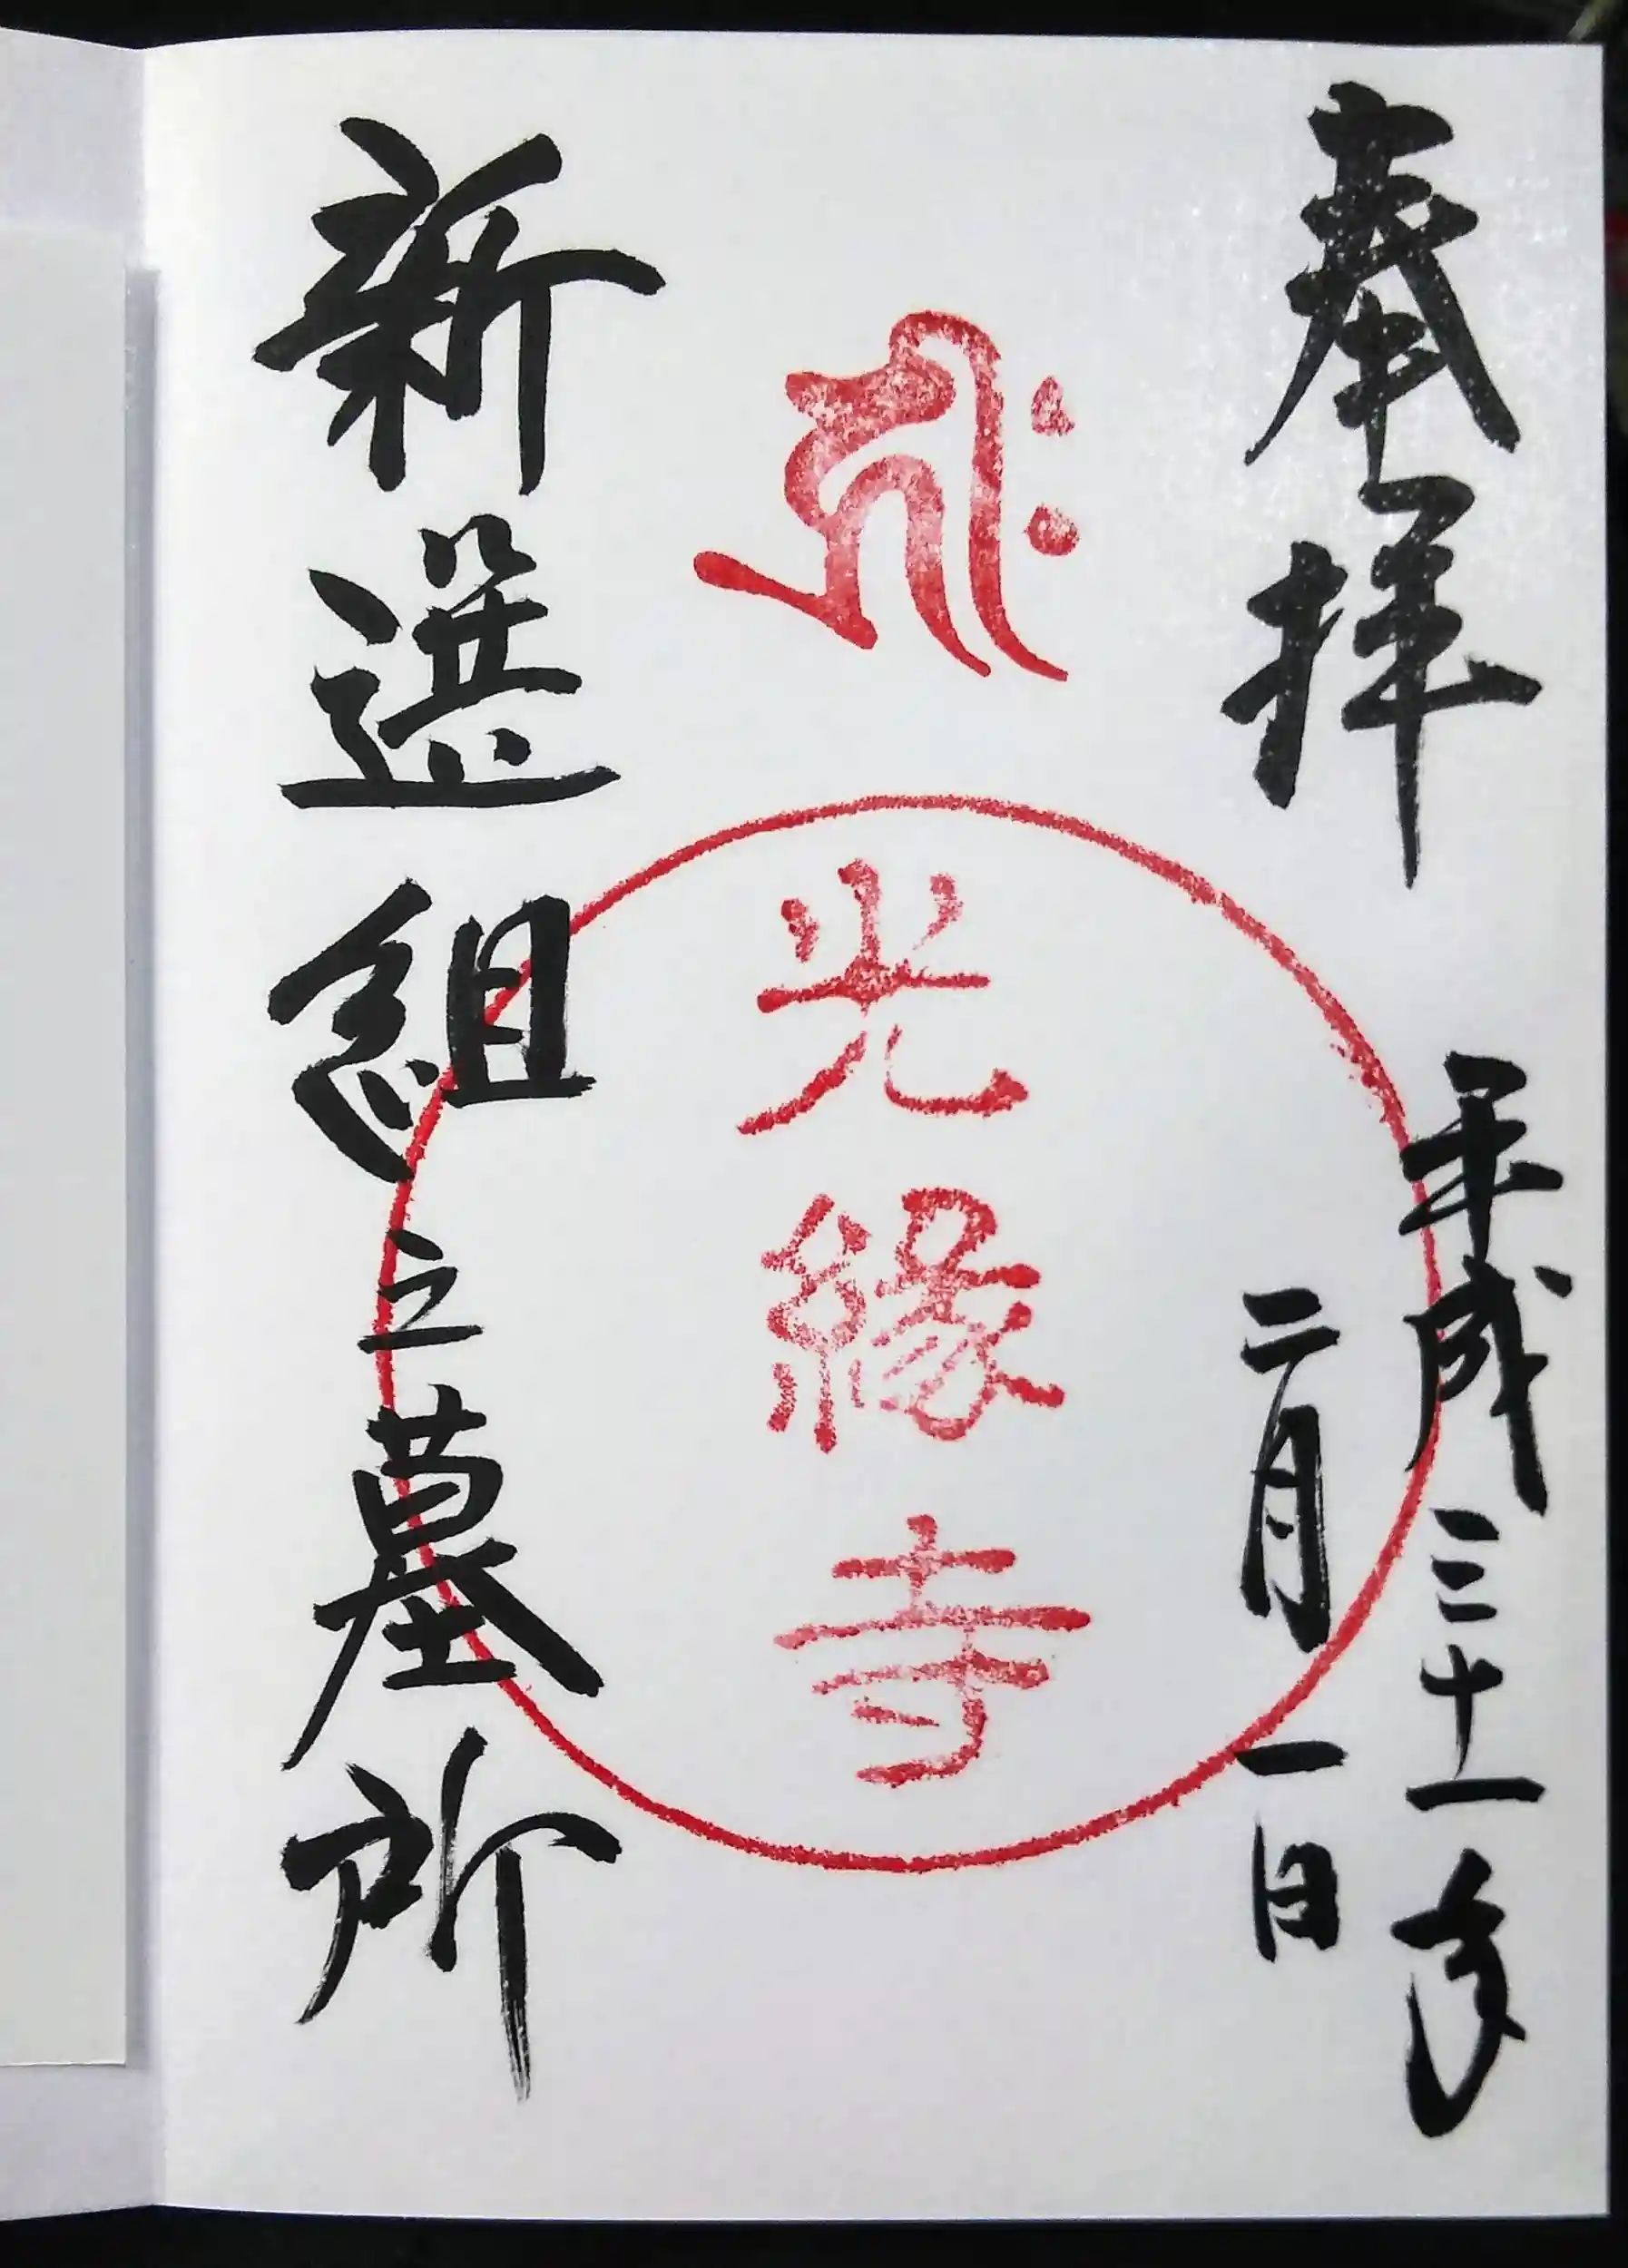 奉拝
平成三十一年
二月一日
𑖮𑖿𑖨𑖱𑖾
光縁寺
新選組之墓所